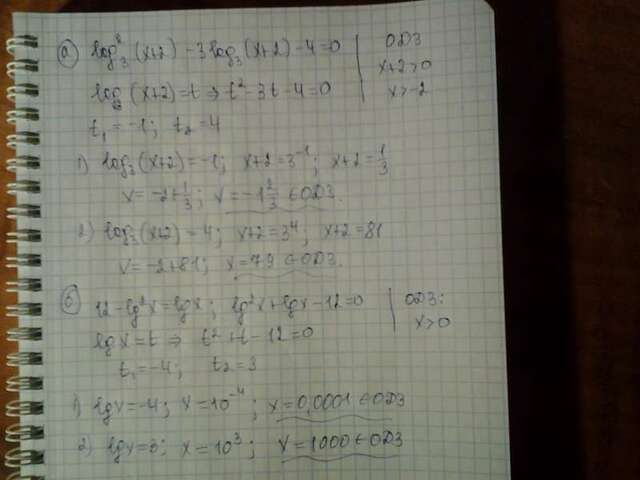 а) log₃²(x+2) - 3log₃(x+2) - 4 = 0
ОДЗ
x+2>0
x>-2
log₃(x+2) = t ⇒ t² - 3t - 4 = 0
t₁ = -1; t₂ = 4
1) log₃(x+2) = -1; x+2 = 3⁻¹; x+2 = 1/3
x = -2+1/3; x = -1 2/3 ∈ ОДЗ.
2) log₃(x+2) = 4; x+2 = 3⁴; x+2 = 81
x = -2+81; x = 79 ∈ ОДЗ.
б) 12 - lg²x = lgx; lg²x + lgx - 12 = 0
ОДЗ:
x>0
lgx = t ⇒ t² + t - 12 = 0
t₁ = -4; t₂ = 3
1) lgx = -4; x = 10⁻⁴; x = 0,0001 ∈ ОДЗ
2) lgx = 3; x = 10³; x = 1000 ∈ ОДЗ